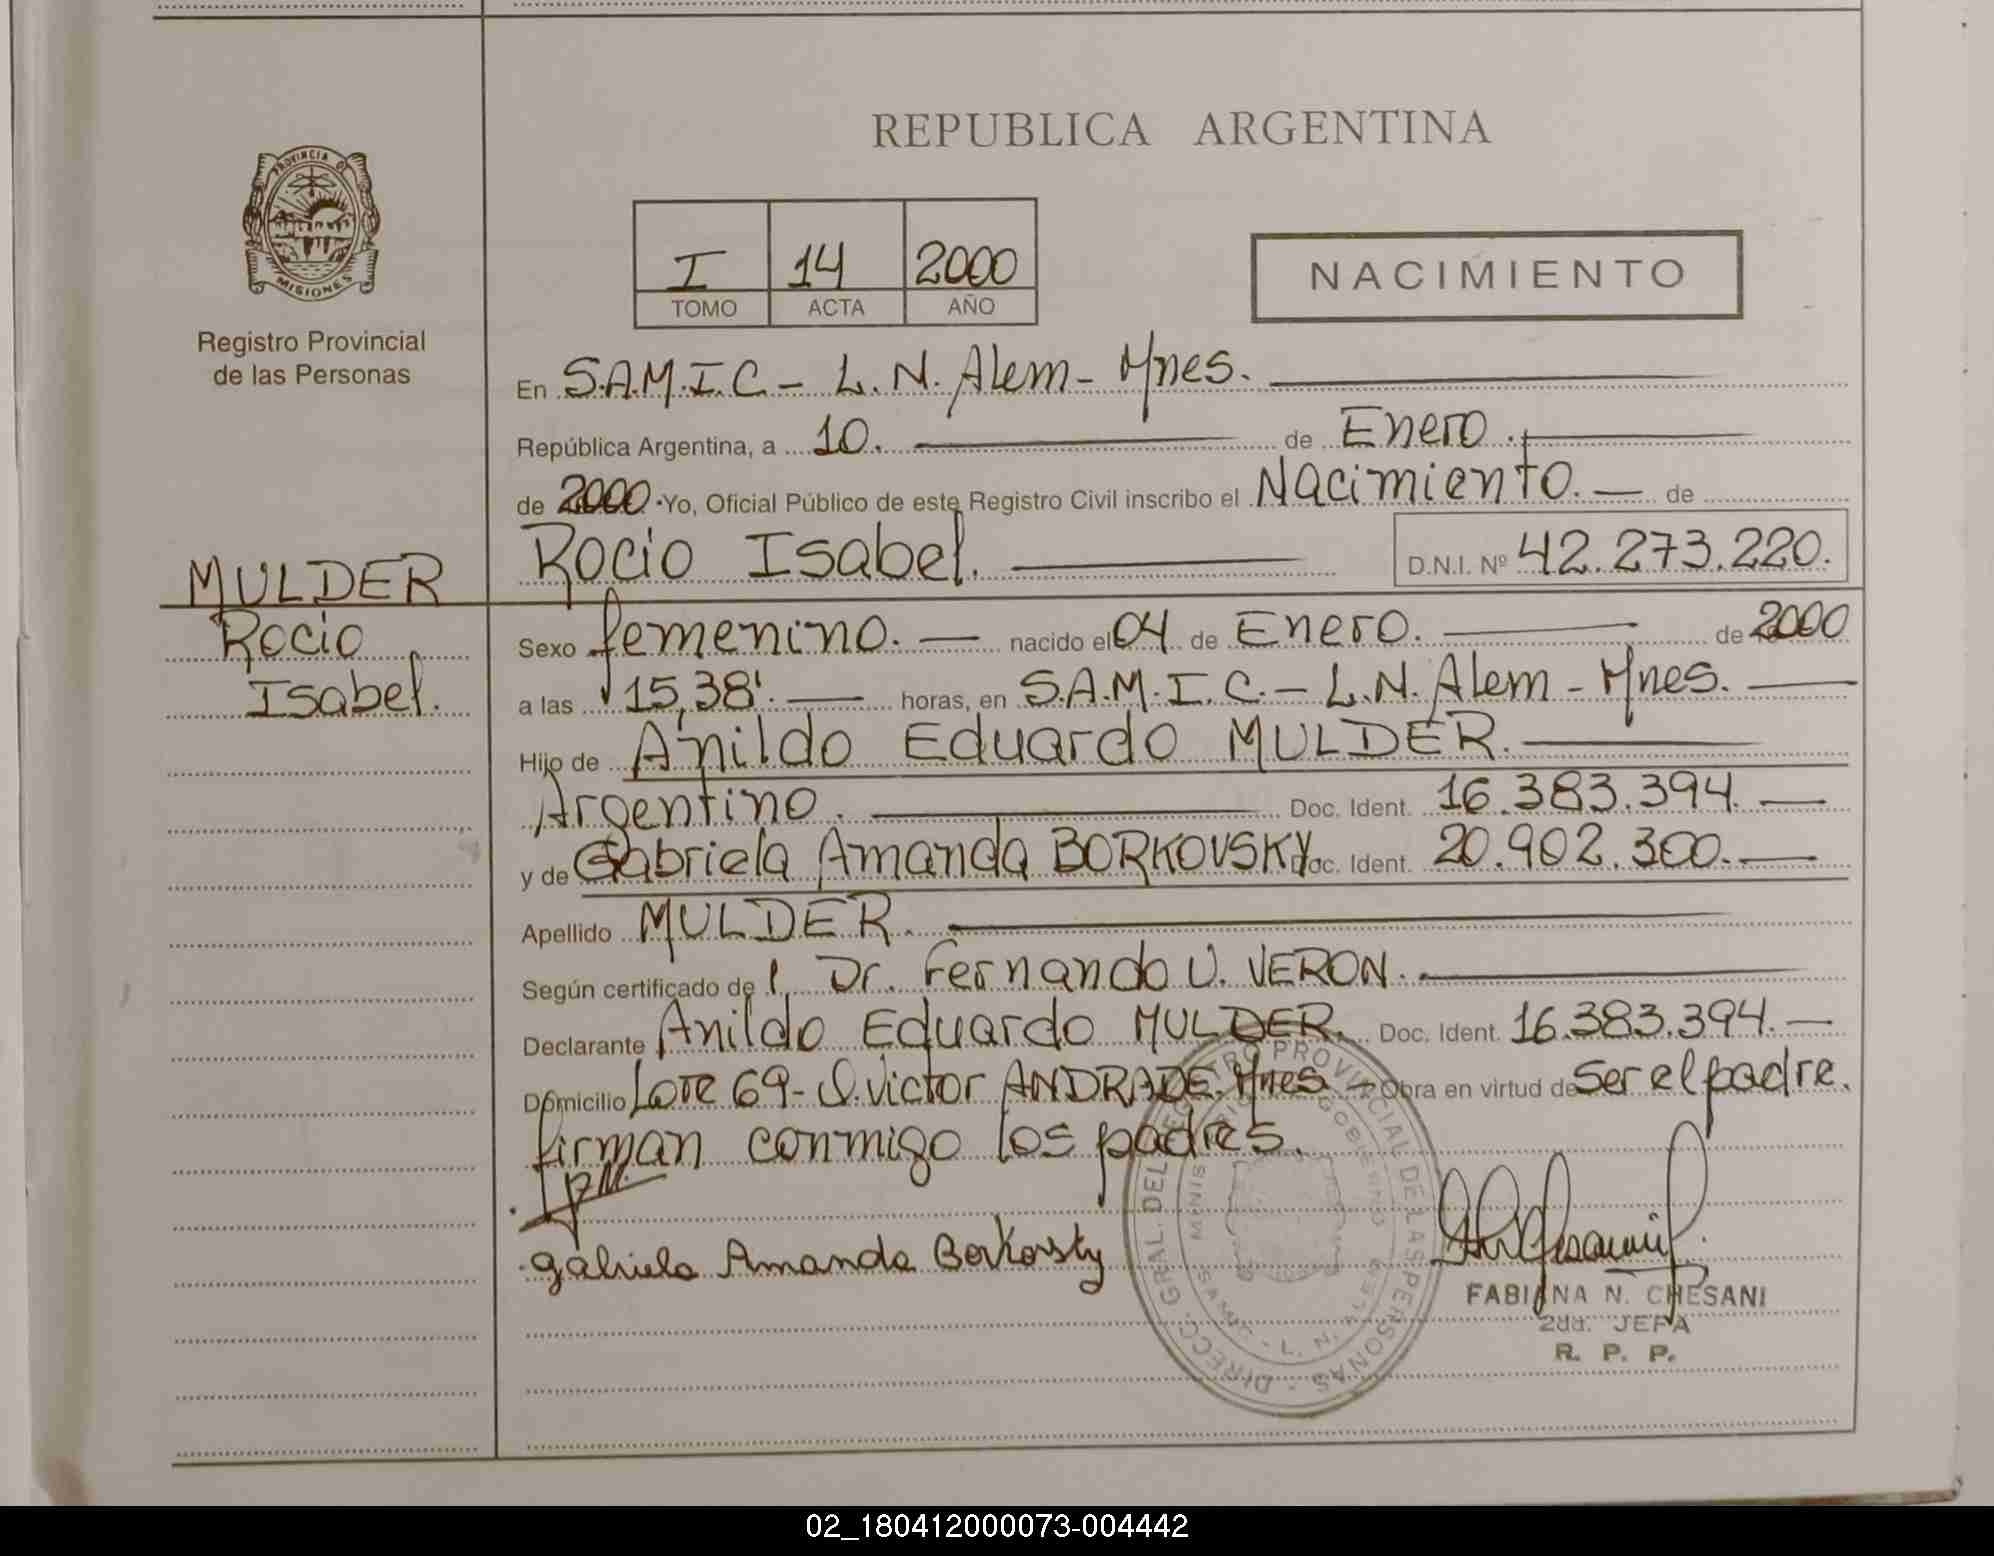 REPUBLICA ARGENTINA
PROVINCIA DE
MISIONES
Registro Provincial
de las Personas
I 14 2000
TOMO ACTA AÑO
NACIMIENTO
En S.A.M.I.C - L.N. Alem - Mnes.
República Argentina, a 10. de Enero.
de 2000. Yo, Oficial Público de este Registro Civil inscribo el Nacimiento. de
Rocio Isabel. D.N.I. Nº 42.273.220.
MULDER
Rocio
Isabel.
Sexo femenino. nacido el 04 de Enero. de 2000
a las 15,38'. horas, en S.A.M.I.C. - L.N. Alem - Mnes.
Hijo de Anildo Eduardo MULDER.
Argentino. Doc. Ident. 16.383.394.
y de Gabriela Amanda BORKOVSKY Doc. Ident. 20.902.300.
Apellido MULDER.
Según certificado de l Dr. Fernando U. VERON.
Declarante Anildo Eduardo MULDER. Doc. Ident. 16.383.394.
Domicilio Lote 69- D. Victor ANDRADE. Mnes. Obra en virtud de Ser el padre.
firman conmigo los padres.
Gabriela Amanda Borkovsky
DIRECC. GRAL. DEL REGISTRO PROVINCIAL DE LAS PERSONAS
FABIANA N. CHESANI
2da. JEFA
R. P. P.
02_180412000073-004442